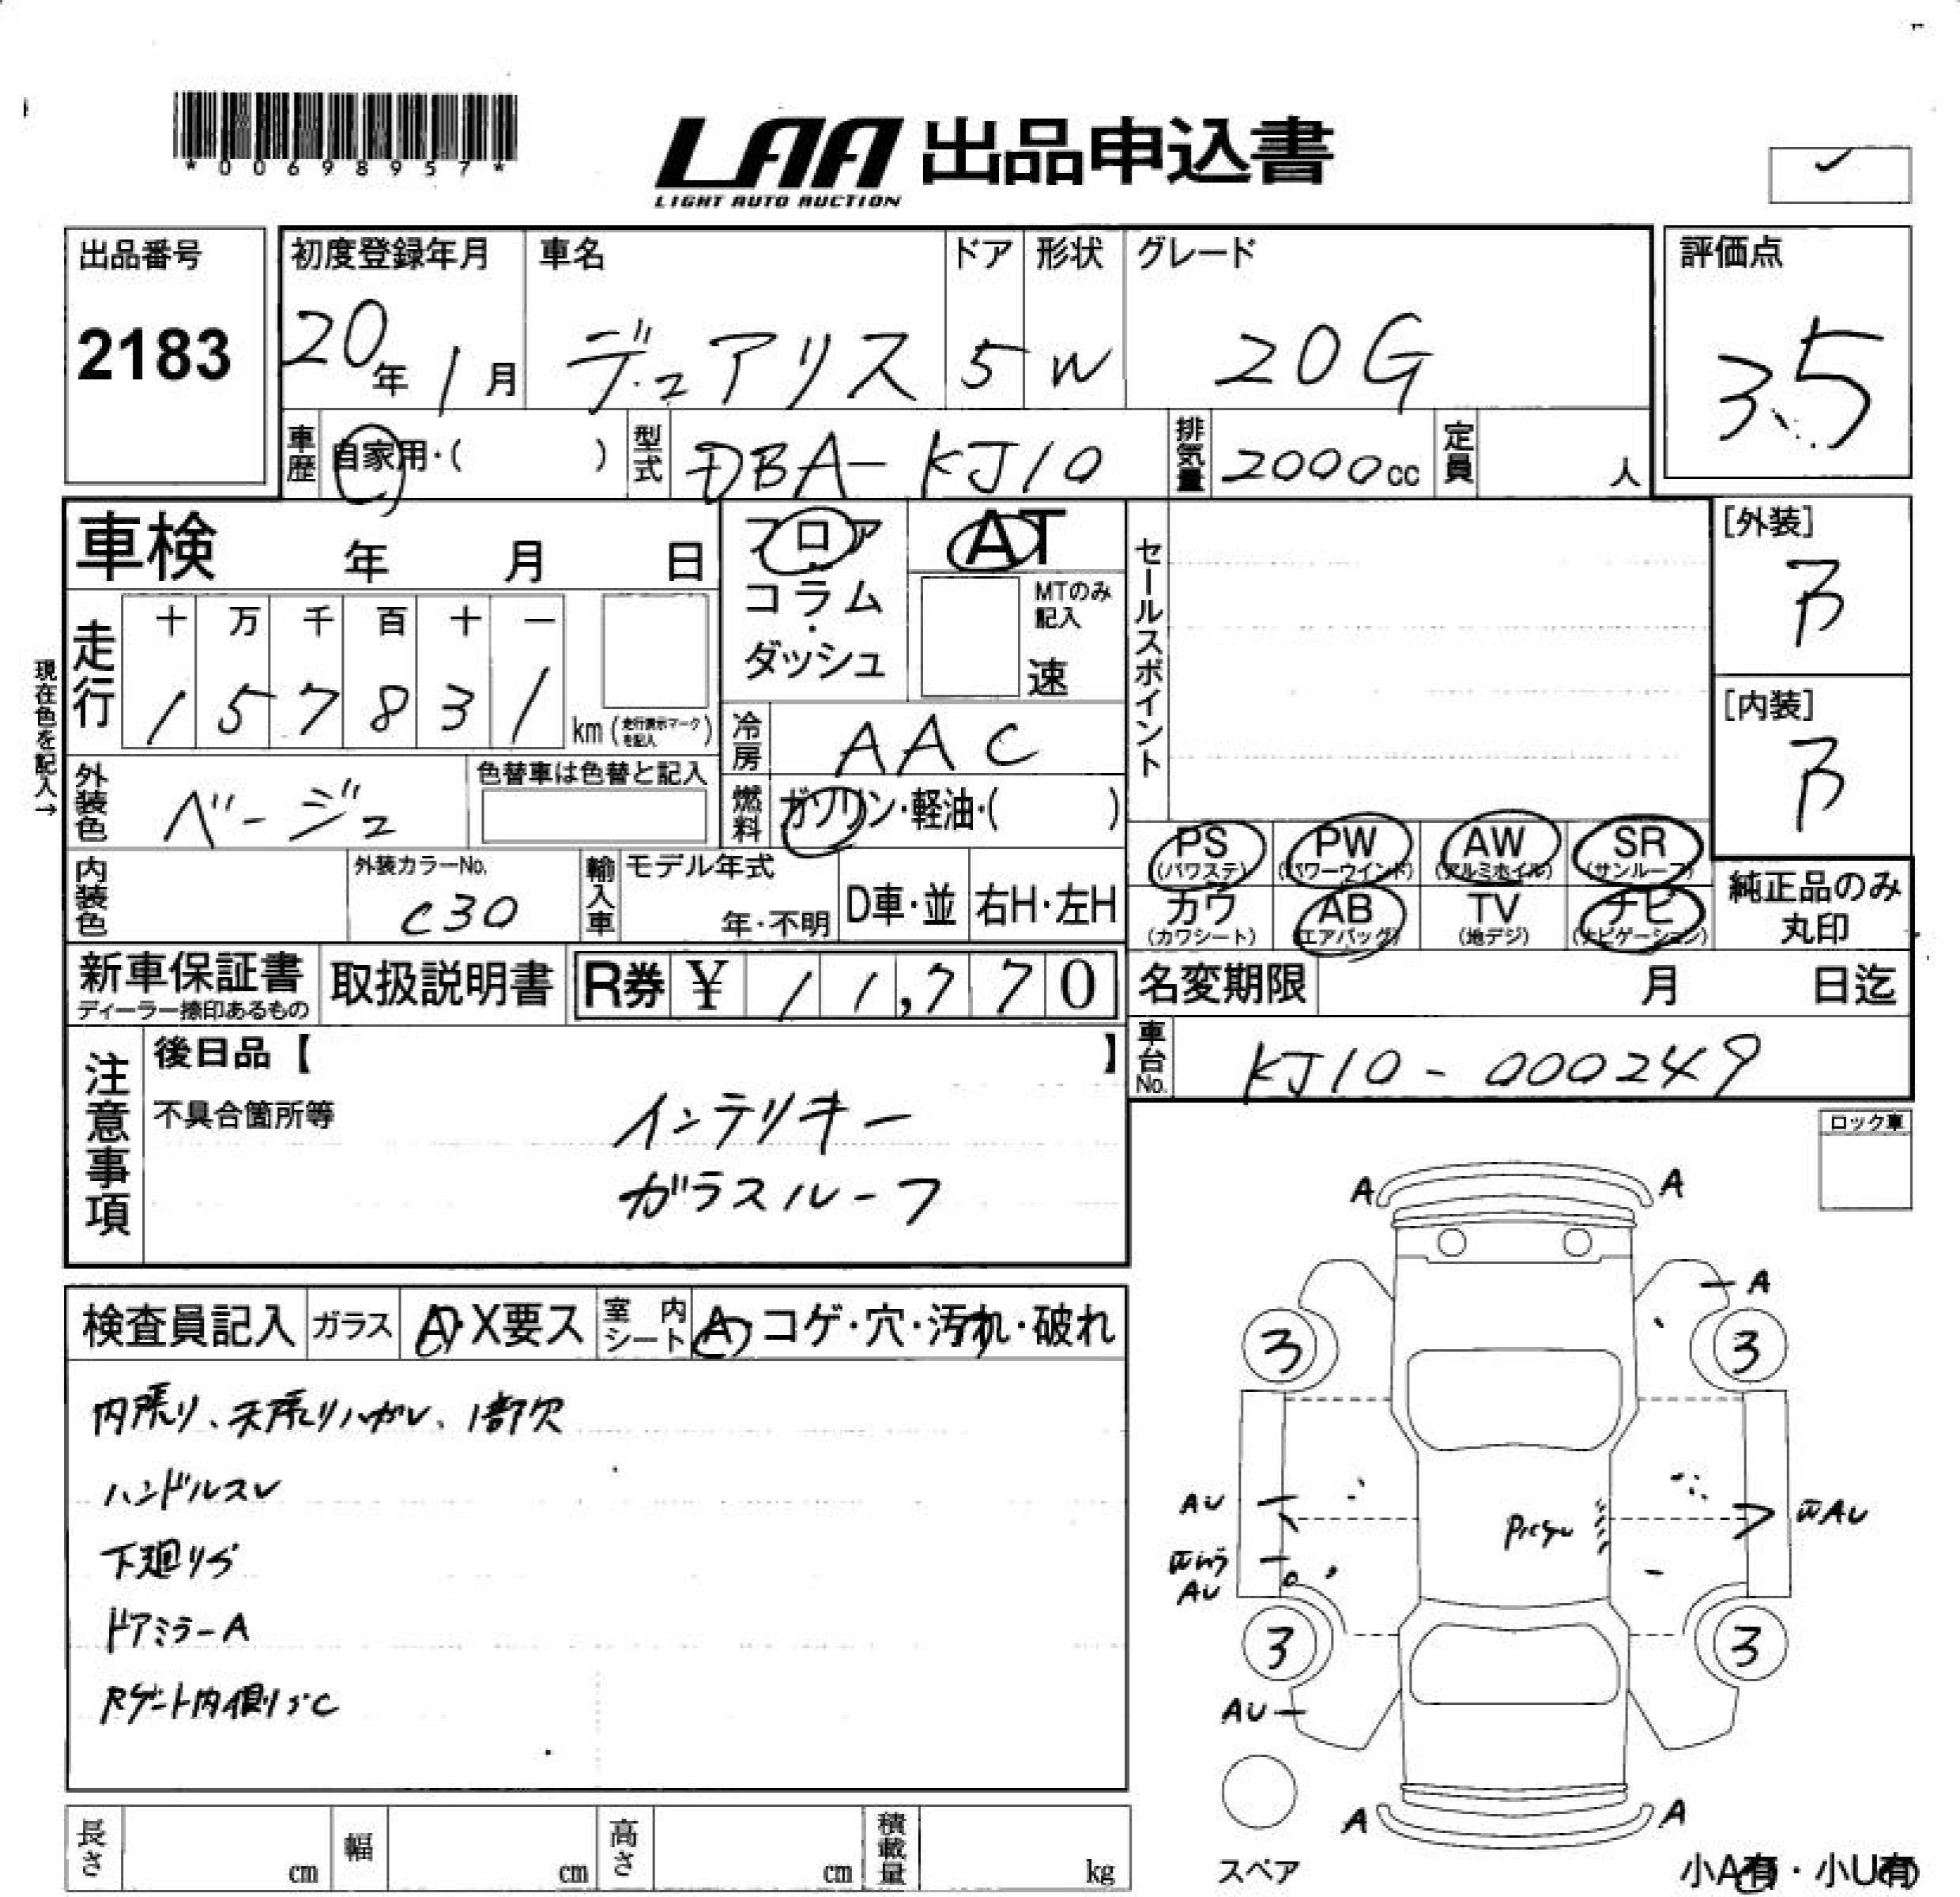 *00698957*
LAA 出品申込書
LIGHT AUTO AUCTION
出品番号
2183
初度登録年月
20年1月
車名
デュアリス
ドア
5
形状
W
グレード
20G
評価点
3.5
車歴
自家用・( )
型式
DBA-KJ10
排気量
2000cc
定員
人
車検 年 月 日
フロア
コラム
・
ダッシュ
AT
MTのみ
記入
速
セールスポイント
[外装]
B
[内装]
B
現在色を記入→
走行
十 万 千 百 十 一
1 5 7 8 3 1
km (走行表示マークを記入)
冷房
AAC
外装色
ベージュ
色替車は色替と記入
燃料
ガソリン・軽油・( )
内装色
外装カラーNo.
C30
輸入車
モデル年式
年・不明
D車・並
右H・左H
PS
(パワステ)
PW
(パワーウインド)
AW
(アルミホイル)
SR
(サンルーフ)
カワ
(カワシート)
AB
(エアバッグ)
TV
(地デジ)
ナビ
(ナビゲーション)
純正品のみ
丸印
新車保証書
ディーラー捺印あるもの
取扱説明書
R券 ¥ 11,770
名変期限 月 日迄
車台No.
KJ10-000249
注意事項
後日品【 】
不具合箇所等
インテリキー
ガラスルーフ
ロック車
検査員記入
ガラス
A・X要ス
室内シート
A・コゲ・穴・汚れ・破れ
内張り、天張りハガレ、1部欠
ハンドルスレ
下廻りサ
ドアミラーA
Rゲート内側サC
A A
A
3 3
AU
AU
AU
3 3
AU
A A
スペア
小A有・小U有
長さ cm
幅 cm
高さ cm
積載量 kg